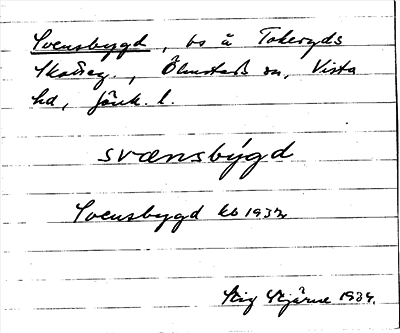 Svensbygd, bs å Takeryds
Skatteg., Ölmstads sn, Vista
hd, Jönk. l.
svænsbýgd
Svensbygd kb 1932
Stig Stjärne 1934.